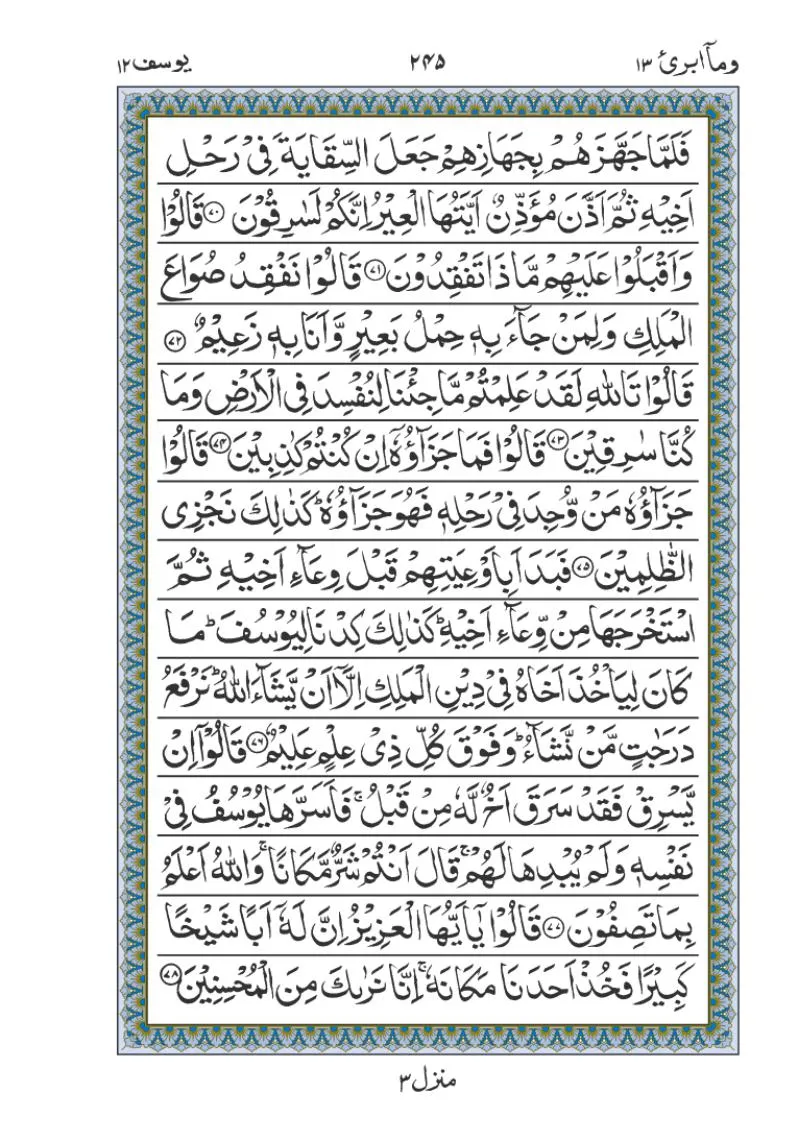 وماۤ ابرئ ١٣ ٢٤٥ يوسف ١٢
فَلَمَّا جَهَّزَهُمْ بِجَهَازِهِمْ جَعَلَ السِّقَايَةَ فِیْ رَحْلِ
اَخِيْهِ ثُمَّ اَذَّنَ مُؤَذِّنٌ اَيَّتُهَا الْعِيْرُ اِنَّكُمْ لَسٰرِقُوْنَ ﴿٧٠﴾ قَالُوْا
وَاَقْبَلُوْا عَلَيْهِمْ مَّاذَا تَفْقِدُوْنَ ﴿٧١﴾ قَالُوْا نَفْقِدُ صُوَاعَ
الْمَلِكِ وَلِمَنْ جَآءَ بِهٖ حِمْلُ بَعِيْرٍ وَّاَنَا بِهٖ زَعِيْمٌ ﴿٧٢﴾
قَالُوْا تَاللّٰهِ لَقَدْ عَلِمْتُمْ مَّا جِئْنَا لِنُفْسِدَ فِی الْاَرْضِ وَمَا
كُنَّا سٰرِقِيْنَ ﴿٧٣﴾ قَالُوْا فَمَا جَزَآؤُهٗۤ اِنْ كُنْتُمْ كٰذِبِيْنَ ﴿٧٤﴾ قَالُوْا
جَزَآؤُهٗ مَنْ وُّجِدَ فِیْ رَحْلِهٖ فَهُوَ جَزَآؤُهٗ ؕ كَذٰلِكَ نَجْزِی
الظّٰلِمِيْنَ ﴿٧٥﴾ فَبَدَاَ بِاَوْعِيَتِهِمْ قَبْلَ وِعَآءِ اَخِيْهِ ثُمَّ
اسْتَخْرَجَهَا مِنْ وِّعَآءِ اَخِيْهِ ؕ كَذٰلِكَ كِدْنَا لِيُوْسُفَ ؕ مَا
كَانَ لِيَاْخُذَ اَخَاهُ فِیْ دِيْنِ الْمَلِكِ اِلَّاۤ اَنْ يَّشَآءَ اللّٰهُ ؕ نَرْفَعُ
دَرَجٰتٍ مَّنْ نَّشَآءُ ؕ وَفَوْقَ كُلِّ ذِیْ عِلْمٍ عَلِيْمٌ ﴿٧٦﴾ قَالُوْۤا اِنْ
يَّسْرِقْ فَقَدْ سَرَقَ اَخٌ لَّهٗ مِنْ قَبْلُ ۚ فَاَسَرَّهَا يُوْسُفُ فِیْ
نَفْسِهٖ وَلَمْ يُبْدِهَا لَهُمْ ۚ قَالَ اَنْتُمْ شَرٌّ مَّكَانًا ۚ وَاللّٰهُ اَعْلَمُ
بِمَا تَصِفُوْنَ ﴿٧٧﴾ قَالُوْا يٰۤاَيُّهَا الْعَزِيْزُ اِنَّ لَهٗۤ اَبًا شَيْخًا
كَبِيْرًا فَخُذْ اَحَدَنَا مَكَانَهٗ ۚ اِنَّا نَرٰىكَ مِنَ الْمُحْسِنِيْنَ ﴿٧٨﴾
منزل ٣